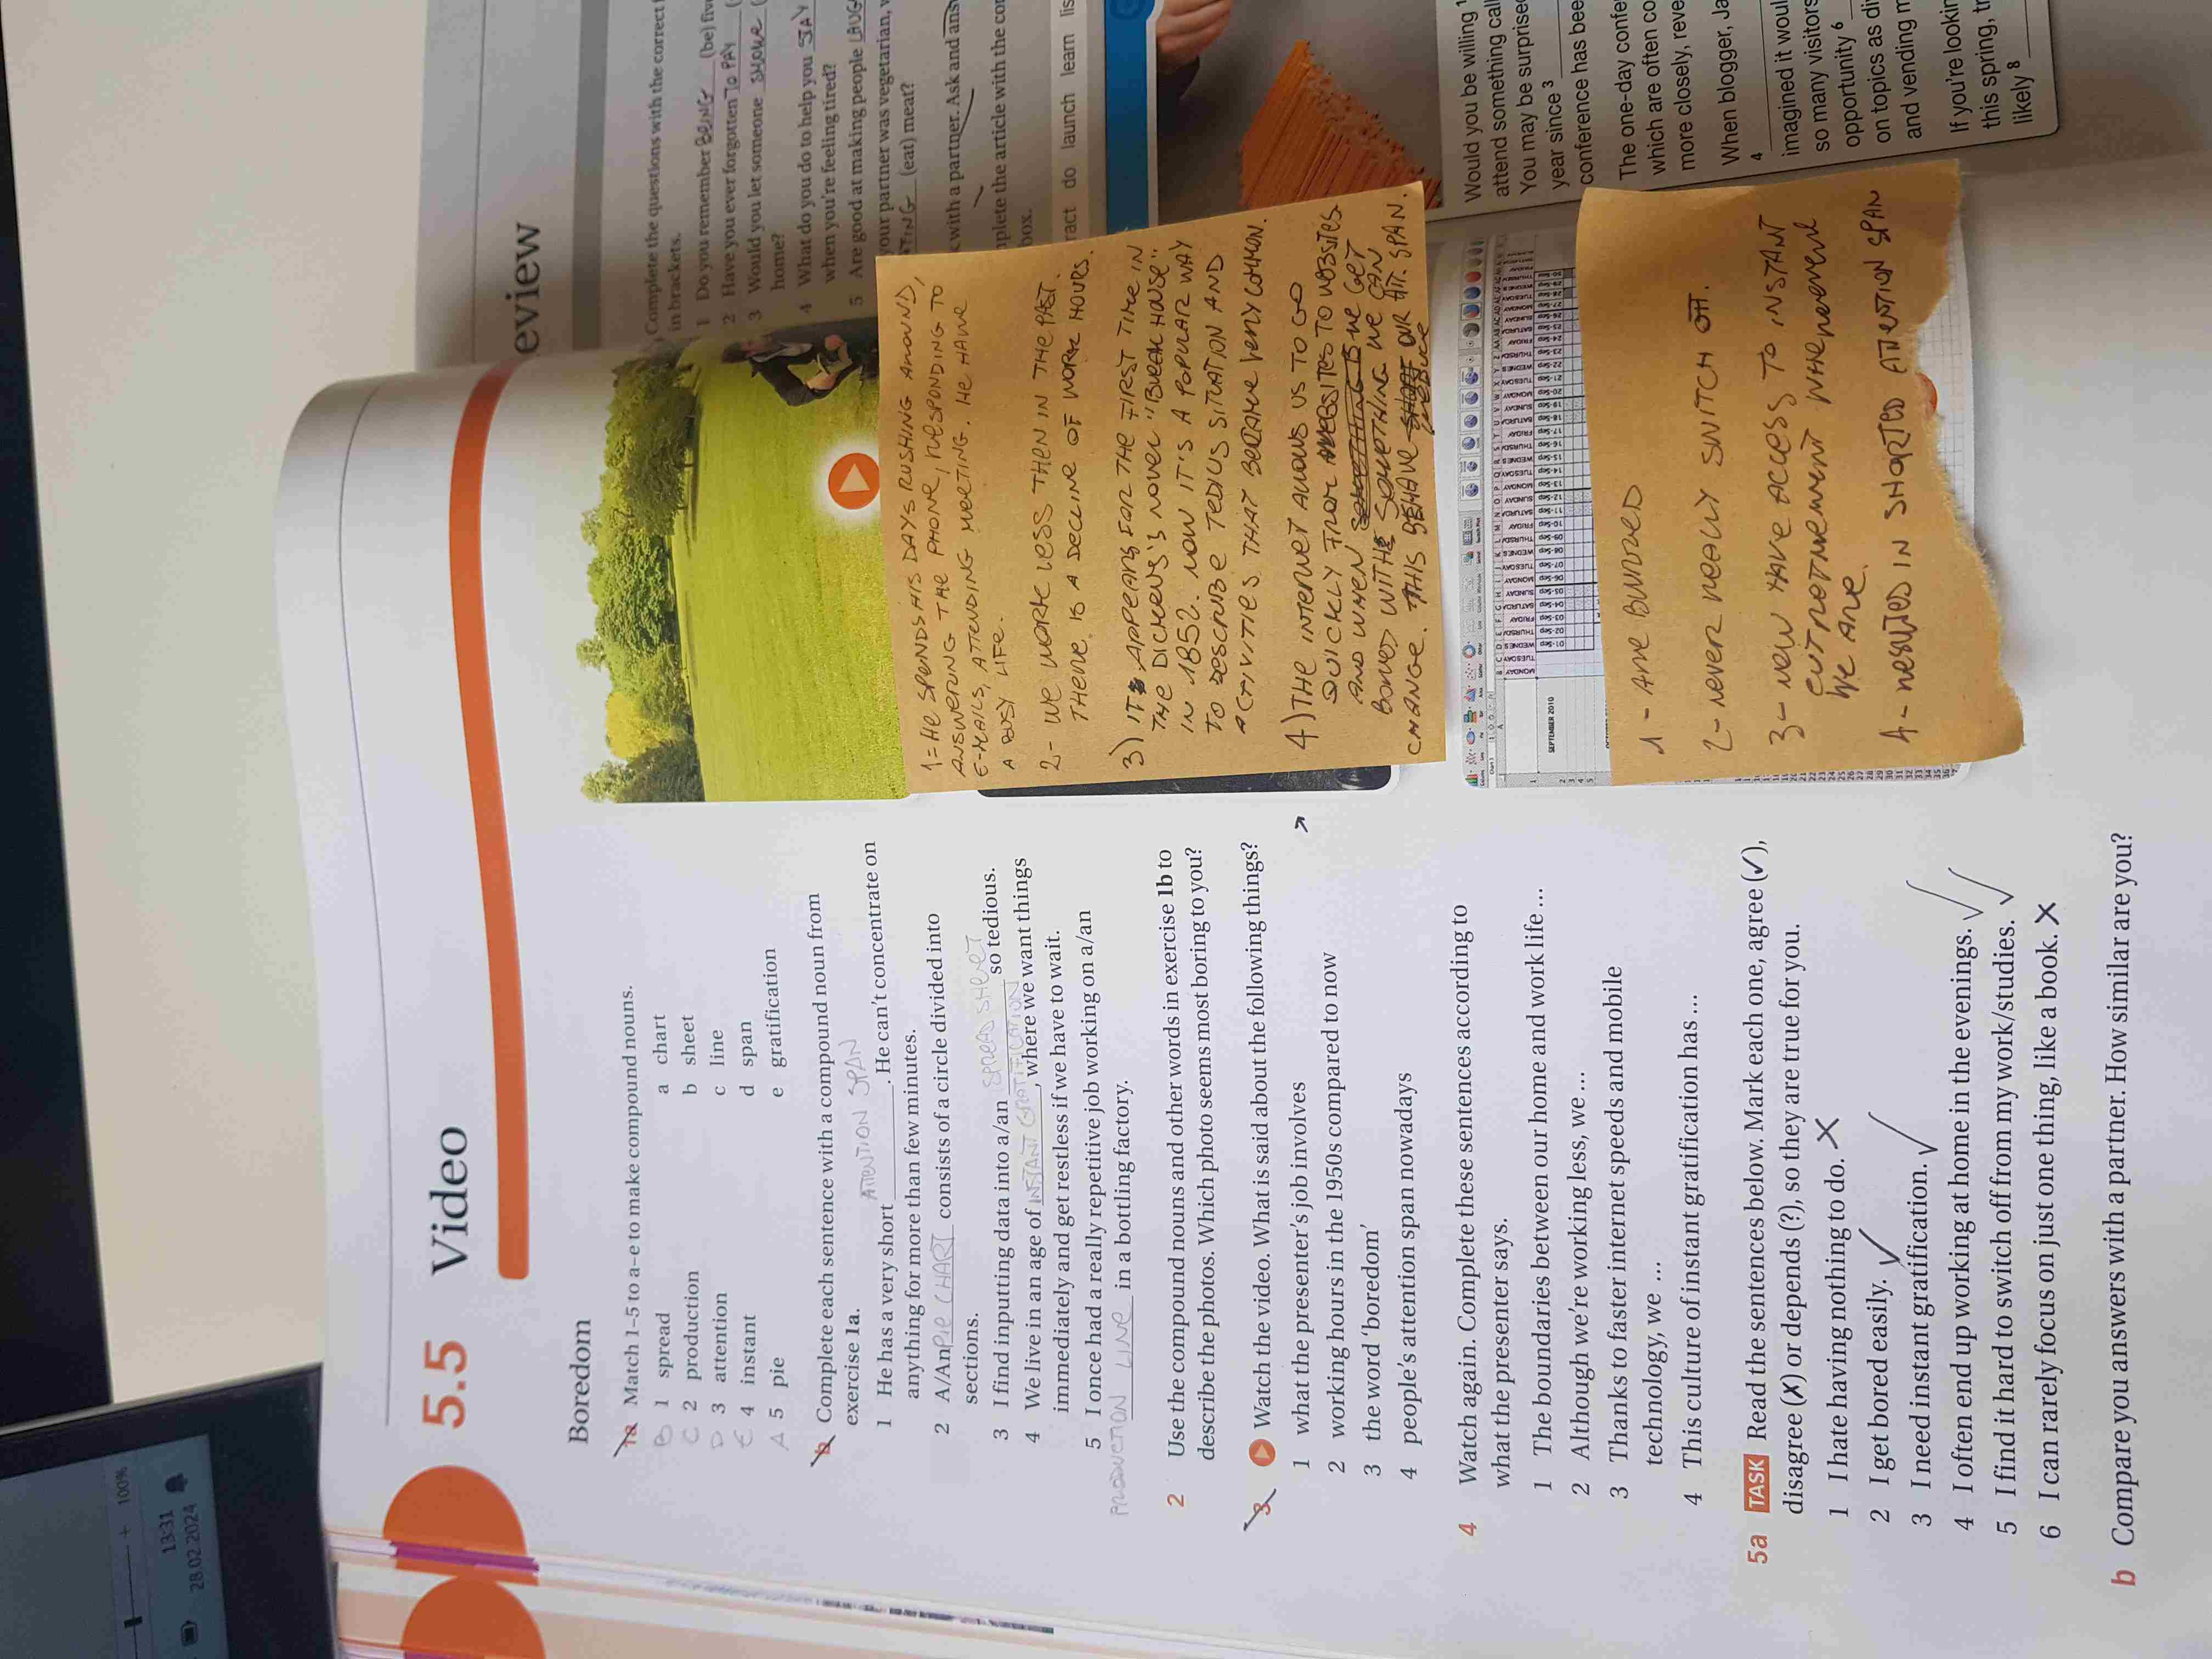 5.5 Video
Boredom
1a Match 1–5 to a–e to make compound nouns.
B 1 spread a chart
C 2 production b sheet
D 3 attention c line
E 4 instant d span
A 5 pie e gratification
b Complete each sentence with a compound noun from
exercise 1a.
ATTENTION SPAN
1 He has a very short ________. He can't concentrate on
anything for more than few minutes.
2 A/An PIE CHART consists of a circle divided into
sections.
SPREAD SHEET
3 I find inputting data into a/an ________ so tedious.
4 We live in an age of INSTANT GRATIFICATION, where we want things
immediately and get restless if we have to wait.
5 I once had a really repetitive job working on a/an
PRODUCTION LINE in a bottling factory.
2 Use the compound nouns and other words in exercise 1b to
describe the photos. Which photo seems most boring to you?
3 Watch the video. What is said about the following things?
1 what the presenter's job involves
2 working hours in the 1950s compared to now
3 the word 'boredom'
4 people's attention span nowadays
4 Watch again. Complete these sentences according to
what the presenter says.
1 The boundaries between our home and work life ...
2 Although we're working less, we ...
3 Thanks to faster internet speeds and mobile
technology, we ...
4 This culture of instant gratification has ...
5a TASK Read the sentences below. Mark each one, agree (✓),
disagree (✗) or depends (?), so they are true for you.
1 I hate having nothing to do. ✗
2 I get bored easily. ✓
3 I need instant gratification. ✓
4 I often end up working at home in the evenings. ✓
5 I find it hard to switch off from my work/studies. ✓
6 I can rarely focus on just one thing, like a book. ✗
b Compare you answers with a partner. How similar are you?
1= HE SPENDS HIS DAYS RUSHING AROUND,
ANSWERING THE PHONE, RESPONDING TO
E-MAILS, ATTENDING MEETING. HE HAVE
A BUSY LIFE.
2- WE WORK LESS THEN IN THE PAST.
THERE IS A DECLINE OF WORK HOURS.
3) IT APPEARS FOR THE FIRST TIME IN
THE DICKENS'S NOVEL "BLEEK HOUSE"
IN 1852. NOW IT'S A POPULAR WAY
TO DESCRIBE TEDIUS SITUATION AND
ACTIVITIES THAT BECAME VERY COMMON.
4) THE INTERNET ALLOWS US TO GO
QUICKLY FROM WEBSITES TO WEBSITES
AND WHEN WE GET
BORED WITH SOMETHING WE CAN
CHANGE. THIS BEHAVE REDUCE OUR ATT. SPAN.
SEPTEMBER 2010
1 - ARE BLURRED
2 - NEVER REALLY SWITCH OFF.
3 - NOW HAVE ACCESS TO INSTANT
ENTERTAINMENT WHENEVER
WE ARE.
4 - RESULTED IN SHORTED ATTENTION SPAN
eview
Complete the questions with the correct
in brackets.
1 Do you remember BEING (be) fiv
2 Have you ever forgotten TO PAY (
3 Would you let someone SMOKE (
home?
4 What do you do to help you STAY
when you're feeling tired?
5 Are good at making people LAUG
your partner was vegetarian,
(eat) meat?
with a partner. Ask and ans
plete the article with the cor
box.
ract do launch learn lis
Would you be willing 1
attend something call
You may be surprise
year since 3
conference has bee
The one-day confe
which are often co
more closely, reve
When blogger, Ja
4
imagined it woul
so many visitors
opportunity 6
on topics as di
and vending m
If you're lookin
this spring, tr
likely 8
100%
13:31
28.02.2024